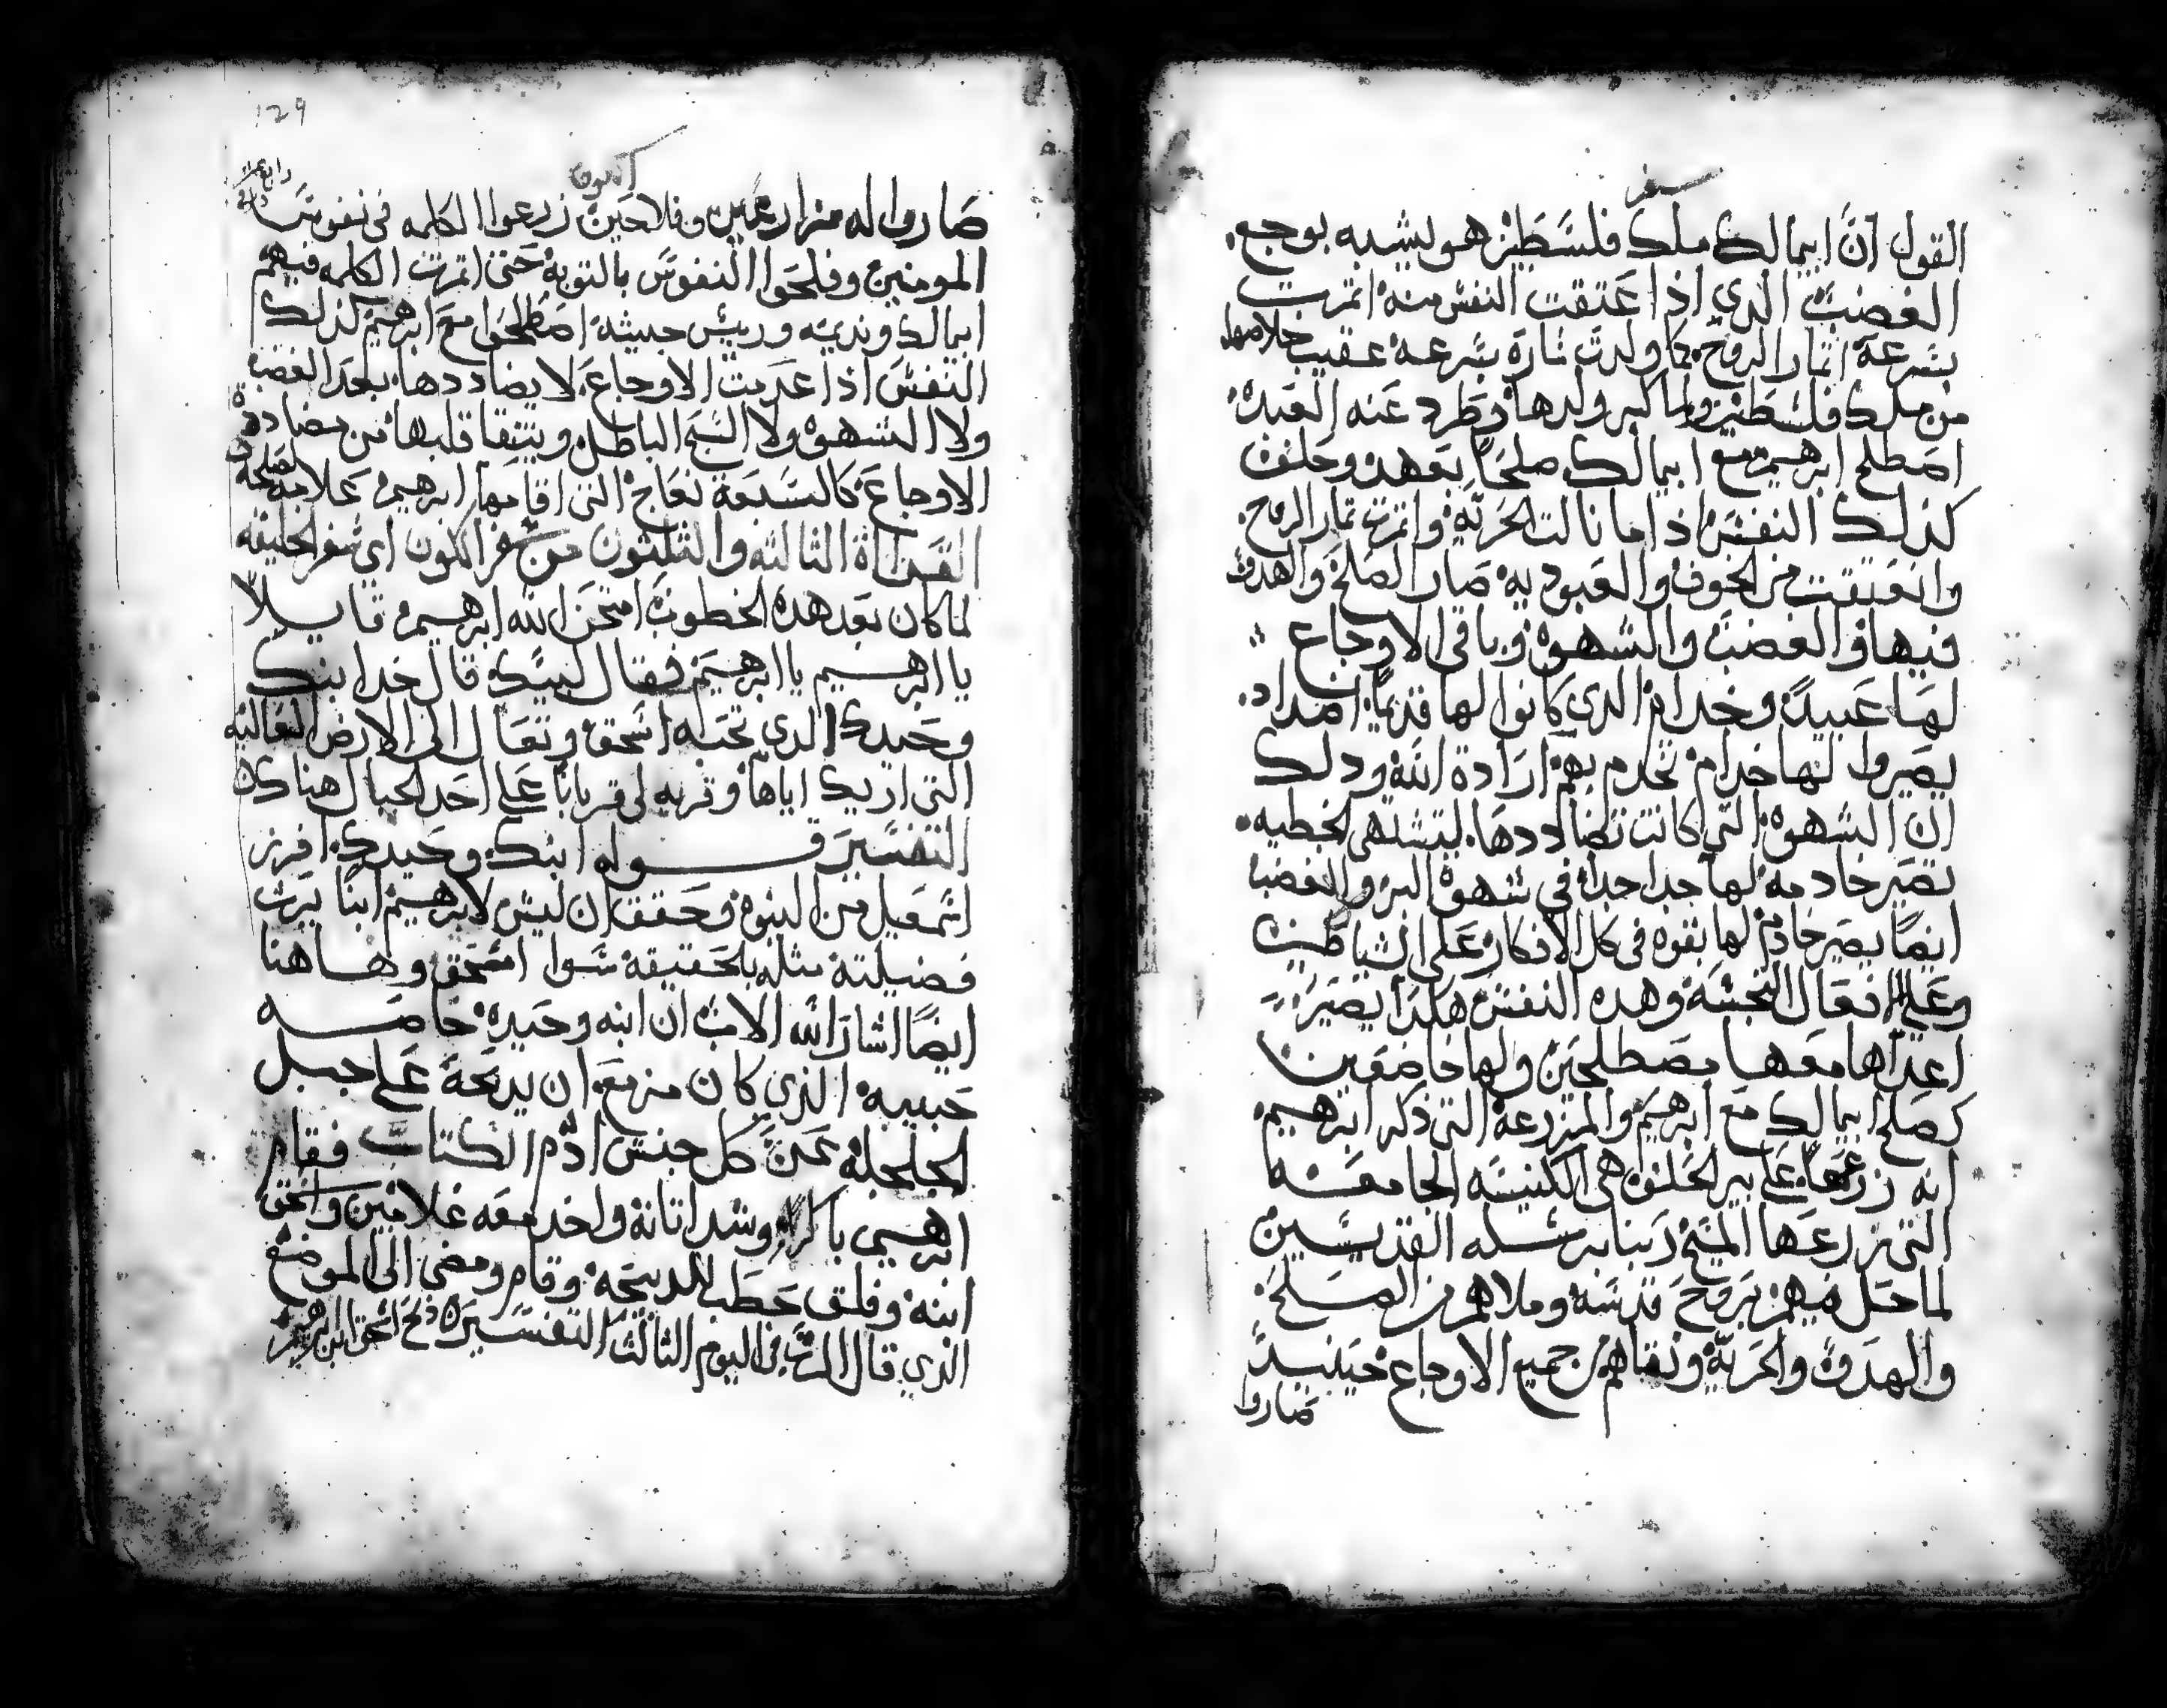 سفر
القول ان ابيمالك ملك فلسطين هو يشبه بوجع
الغضب الذي اذا عتقت النفس منه اثمرت
بسرعة اثمار الروح كما ولدت ساره بسرعه عقيب خلاصها
من ملك فلسطين ولما كبر ولدها وطرد عنه العبده
اصطلح ابرهيم مع ابيمالك صلحا بعهد وحلف
كذلك النفس اذا ما نالت الحريه واثمرت ثمار الروح
وانعتقت من الخوف والعبوديه صار الصلح والهدو
فيها والغضب والشهوه وباقي الاوجاع
لها عبيد وخدام الدي كانوا لها قديما اضداد
يصيروا لها خدام تخدم بهم ارادة الله ودلك
ان الشهوه التي كانت تضاددها لتشتهى الخطيه
تصير خادمه لها جدا جدا في شهوة البر والغضب
ايضا يصير خادم لها بقوه في كل الافكار على الشياطين
وعلى افعال النجسة وهده النفس هكدا يصير
اعداها معها مصطلحين ولها خاضعين
كصلح ابيمالك مع ابرهيم والمزرعة التي ذكر ابرهيم
انه زرعها على بير الحلف هى الكنيسه الجامعه
التي زرعها المسيح ربنا برسله القديسين
لما حل فيهم بروح قدسه وملاهم من الصلح
والهدو والحرية ونقاهم من جميع الاوجاع حينيد
صاروا
129
اكنون
صاروا له مزارعين وفلاحين زرعوا الكلمه في نفوس
المومنين وفلحوا النفوس بالتوبه حتى اثمرت الكلمه فيهم
ابيمالك ونديمه ورييس جيشه اصطلحوا مع ابرهيم كذلك
النفس اذا عدمت الاوجاع لا يضاددها بعد الغضب
ولا الشهوه ولا السبح الباطل ويتنقا قلبها من مضاددة
الاوجاع كالسبعة نعاج التي اقامها ابرهيم علامه لصلحه
القراة الثالثه والثلثون من سفر اكنون اي سفر الخليقه
لما كان بعد هده الخطوب امتحن الله ابرهيم قايلا
يا ابرهيم يا ابرهيم فقال لبيك قال خد ابنك
وحيدك الدي تحبه اسحق وتعال الى الارض العاليه
التي اريك اياها وقربه لى قربانا على احد الجبال هناك
التفسير قوله ابنك وحيدك افرز
اسمعيل من البنوه وحقق ان ليس لابرهيم ابنا يرث
فضيلته مثله بالحقيقه سوا اسحق وهاهنا
ايضا اشار الله الاب ان ابنه وحيده خاصه
حبيبه الذي كان مزمع ان يدبحه على جبل
الجلجله عن كل جنس ادم الكتاب فقام
ابرهيم باكرا وشد اتانه واخد معه غلامين واسحق
ابنه وفلق حطب للدبيحه وقام ومضى الى الموضع
الذي قال الرب في اليوم الثالث التفسير ذبح اسحق ابن ابرهيم